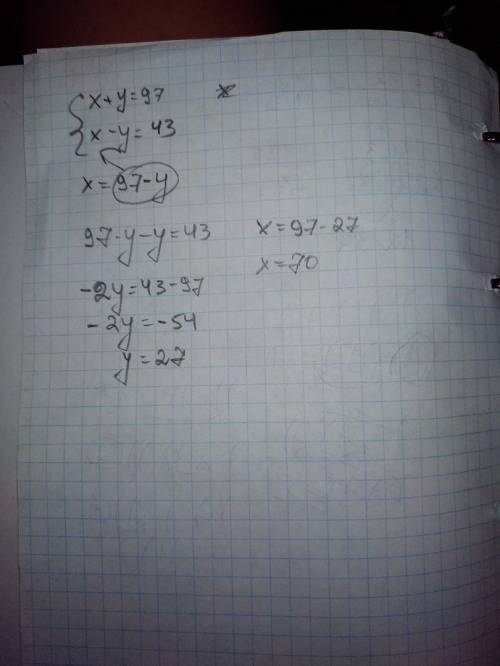 x+y=97
x-y=43
x=97-y
97-y-y=43
-2y=43-97
-2y=-54
y=27
x=97-27
x=70